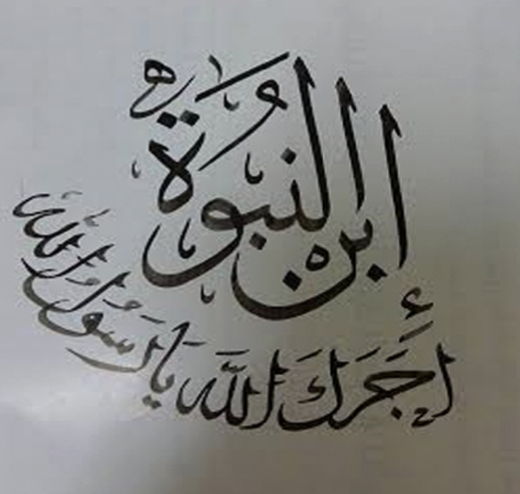 ابن النبوة
أجرك الله يا رسول الله